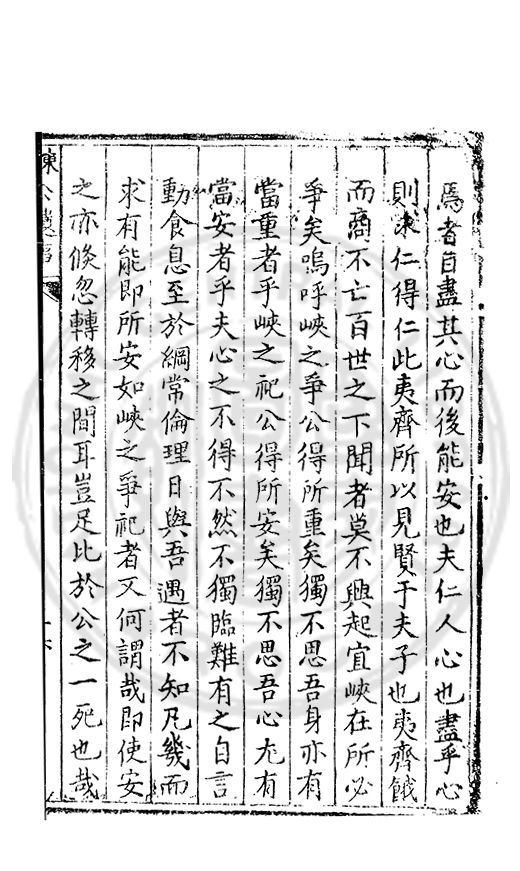 焉者自盡其心而後能安也夫仁人心也盡乎心
則求仁得仁此夷齊所以見賢于夫子也夷齊餓
而商不亡百世之下聞者莫不興起宜峽在所必
爭矣嗚呼峽之爭公得所重矣獨不思吾身亦有
當重者乎峽之祀公得所安矣獨不思吾心尤有
當安者乎夫心之不得不然不獨臨難有之自言
動食息至於綱常倫理日與吾遇者不知凡幾而
求有能即所安如峽之爭祀者又何謂哉即使安
之亦倐忽轉移之間耳豈足比於公之一死也哉